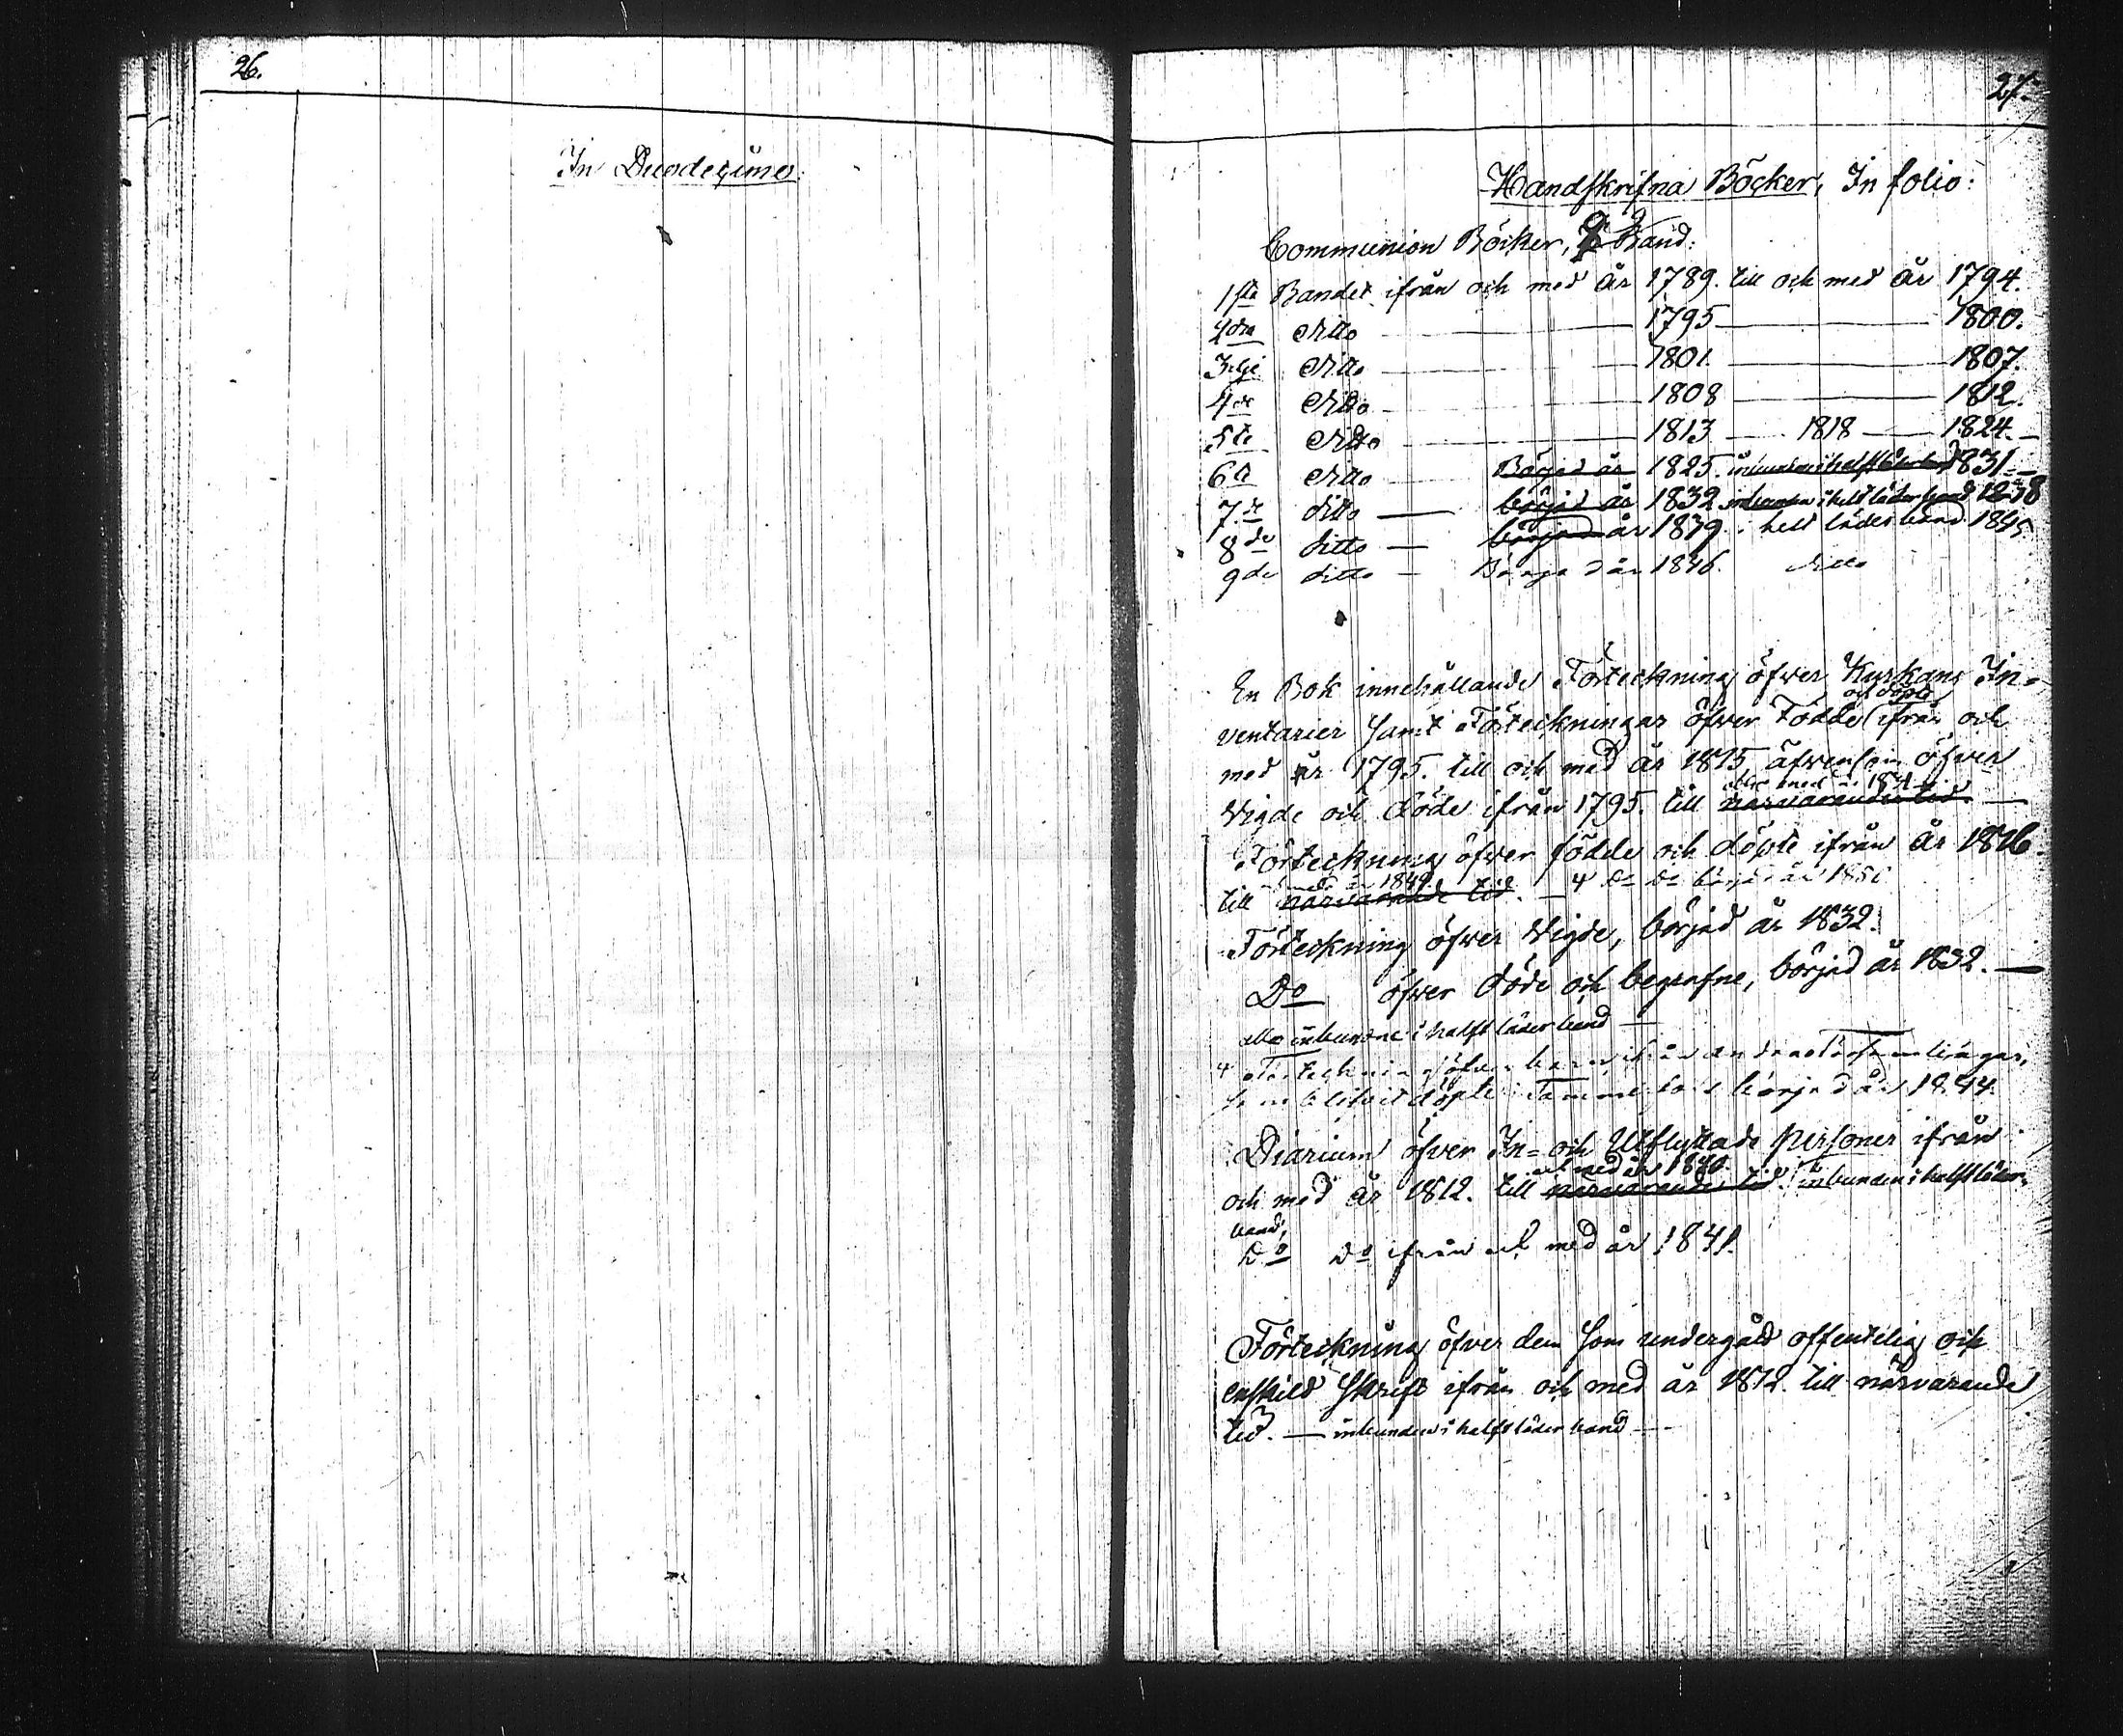 26.
In Duodecimo.
27.
Handskrifna Böcker, In folio:
Communion Böcker, 9 Band.
1sta Bandet ifrån och med år 1789. till och med år 1794.
2dra ditto 1795 1800.
3dje ditto 1801. 1807.
4de ditto 1808 1812.
5te ditto 1813 1818 1824.
6te ditto Börjad år 1825. 1831
7de ditto börjad år 1832 inbunden i helt läder band 1838
8de ditto börjad år 1839. i helt läder band 1845
9de ditto Börjad år 1846. ditto
En Bok innehållande Förteckning öfwer Kyrkans In=
och döpte
ventarier samt Förteckningar öfwer Födde ifrån och
med år 1795. till och med år 1815 äfwensom öfver
och med år 1831
Vigde och döde ifrån 1795. till närvarande tid.
Förteckning öfwer födde och döpte ifrån år 1816
med år 1849
till närvarande tid. — Do Do börjad år 1850
Förteckning öfwer Vigde, börjad år 1832.
Do öfwer döde och begrafne, börjad år 1832. —
alla inbundne i halft läder band —
Förteckning öfver barn ifrån andra Församlingar,
som blifvit döpte i börjad år 1844.
Diarium öfver In= och Utflyttade personer ifrån
och med år 1840.
och med år 1812. till närvarande tid. inbunden i halft läder-
band,
Do Do ifrån och med år 1841.
Förteckning öfver dem som undergådt offentelig och
enskild skrift ifrån och med år 1812. till närvarande
tid. — inbunden i halft läder band —